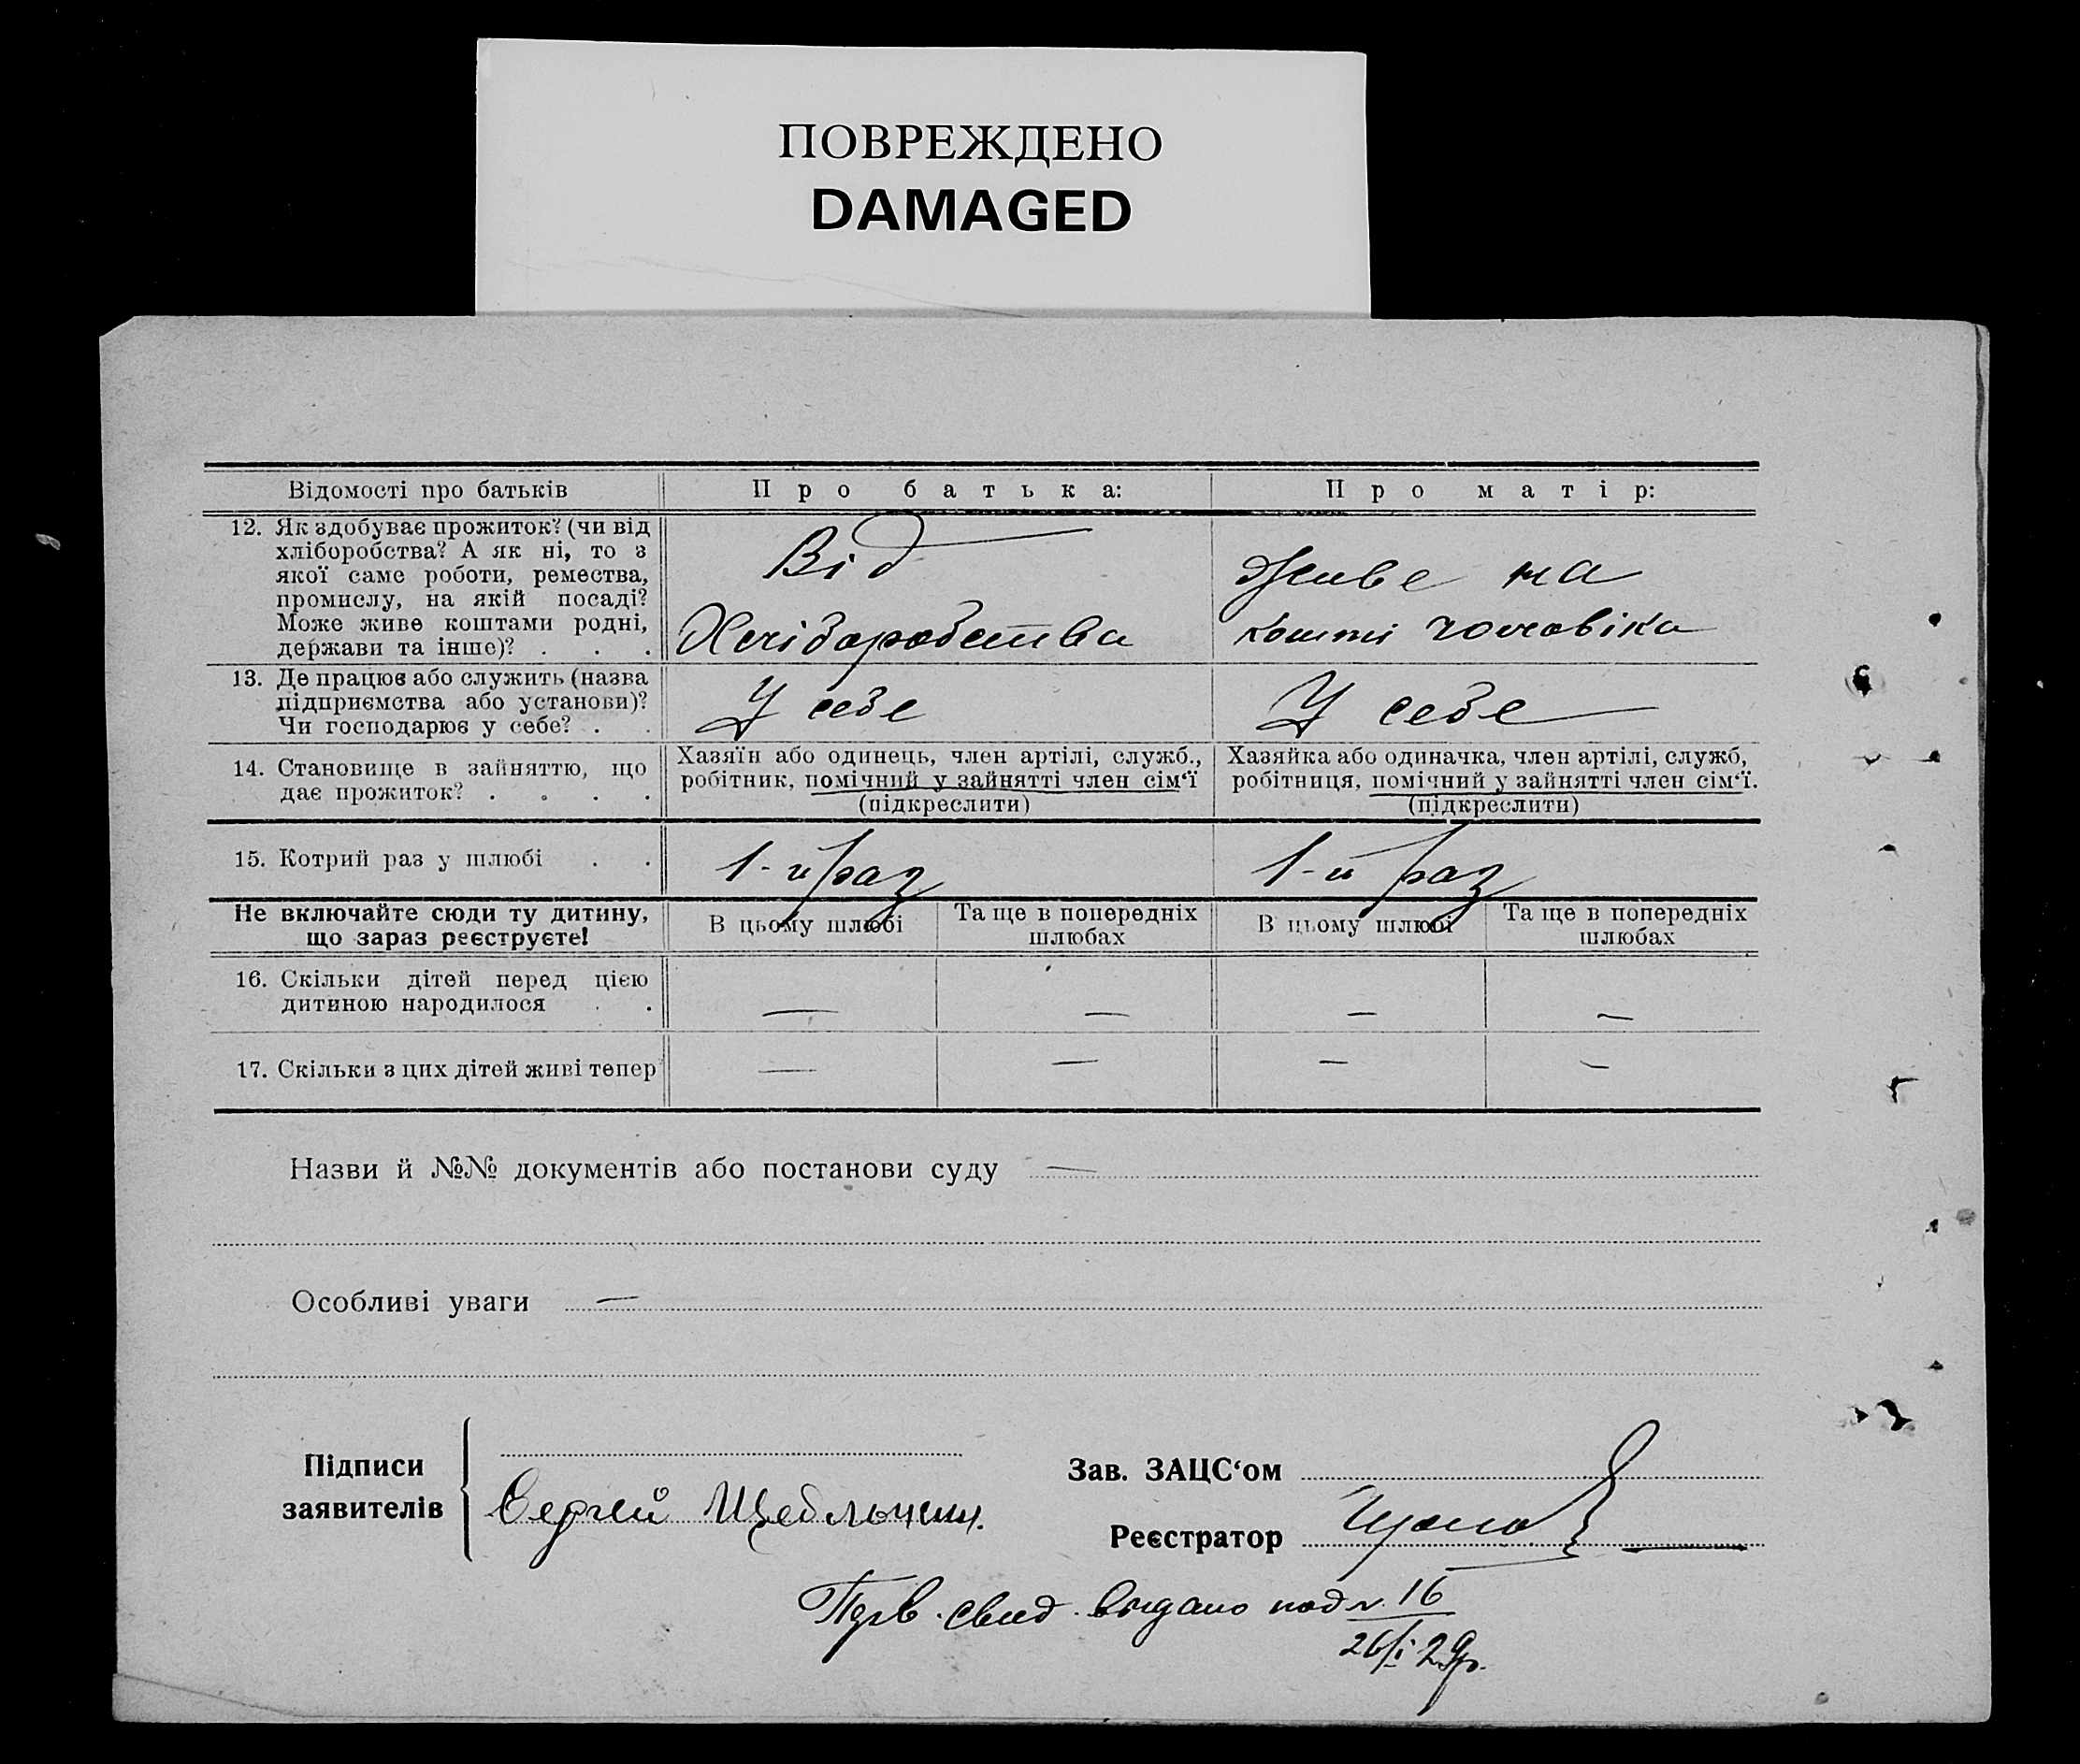 ПОВРЕЖДЕНО
DAMAGED
Відомості про батьків
Про батька:
Про матір:
12. Як здобуває прожиток? (чи від
хліборобства? А як ні, то з
якої саме роботи, ремества,
промислу, на якій посаді?
Може живе коштами родні,
держави та інше)? . . .
Від
Хлібаробства
Живе на
кошти чоловіка
13. Де працює або служить (назва
підприємства або установи)?
Чи господарює у себе? . .
У себе
У себе
14. Становище в зайняттю, що
дає прожиток? . . . .
Хазяїн або одинець, член артілі, служб.,
робітник, помічний у зайнятті член сім‘ї
(підкреслити)
Хазяйка або одиначка, член артілі, служб,
робітниця, помічний у зайнятті член сім‘ї.
(підкреслити)
15. Котрий раз у шлюбі . .
1-й раз
1-й раз
Не включайте сюди ту дитину,
що зараз реєструєте!
В цьому шлюбі
Та ще в попередніх
шлюбах
В цьому шлюбі
Та ще в попередніх
шлюбах
16. Скільки дітей перед цією
дитиною народилося . .
— — — —
17. Скільки з цих дітей живі тепер
— — — —
Назви й №№ документів або постанови суду —
Особливі уваги —
Підписи
заявителів
Сергей
Зав. ЗАЦС‘ом
Реєстратор
свид. видано под N 16
26/I 29р.